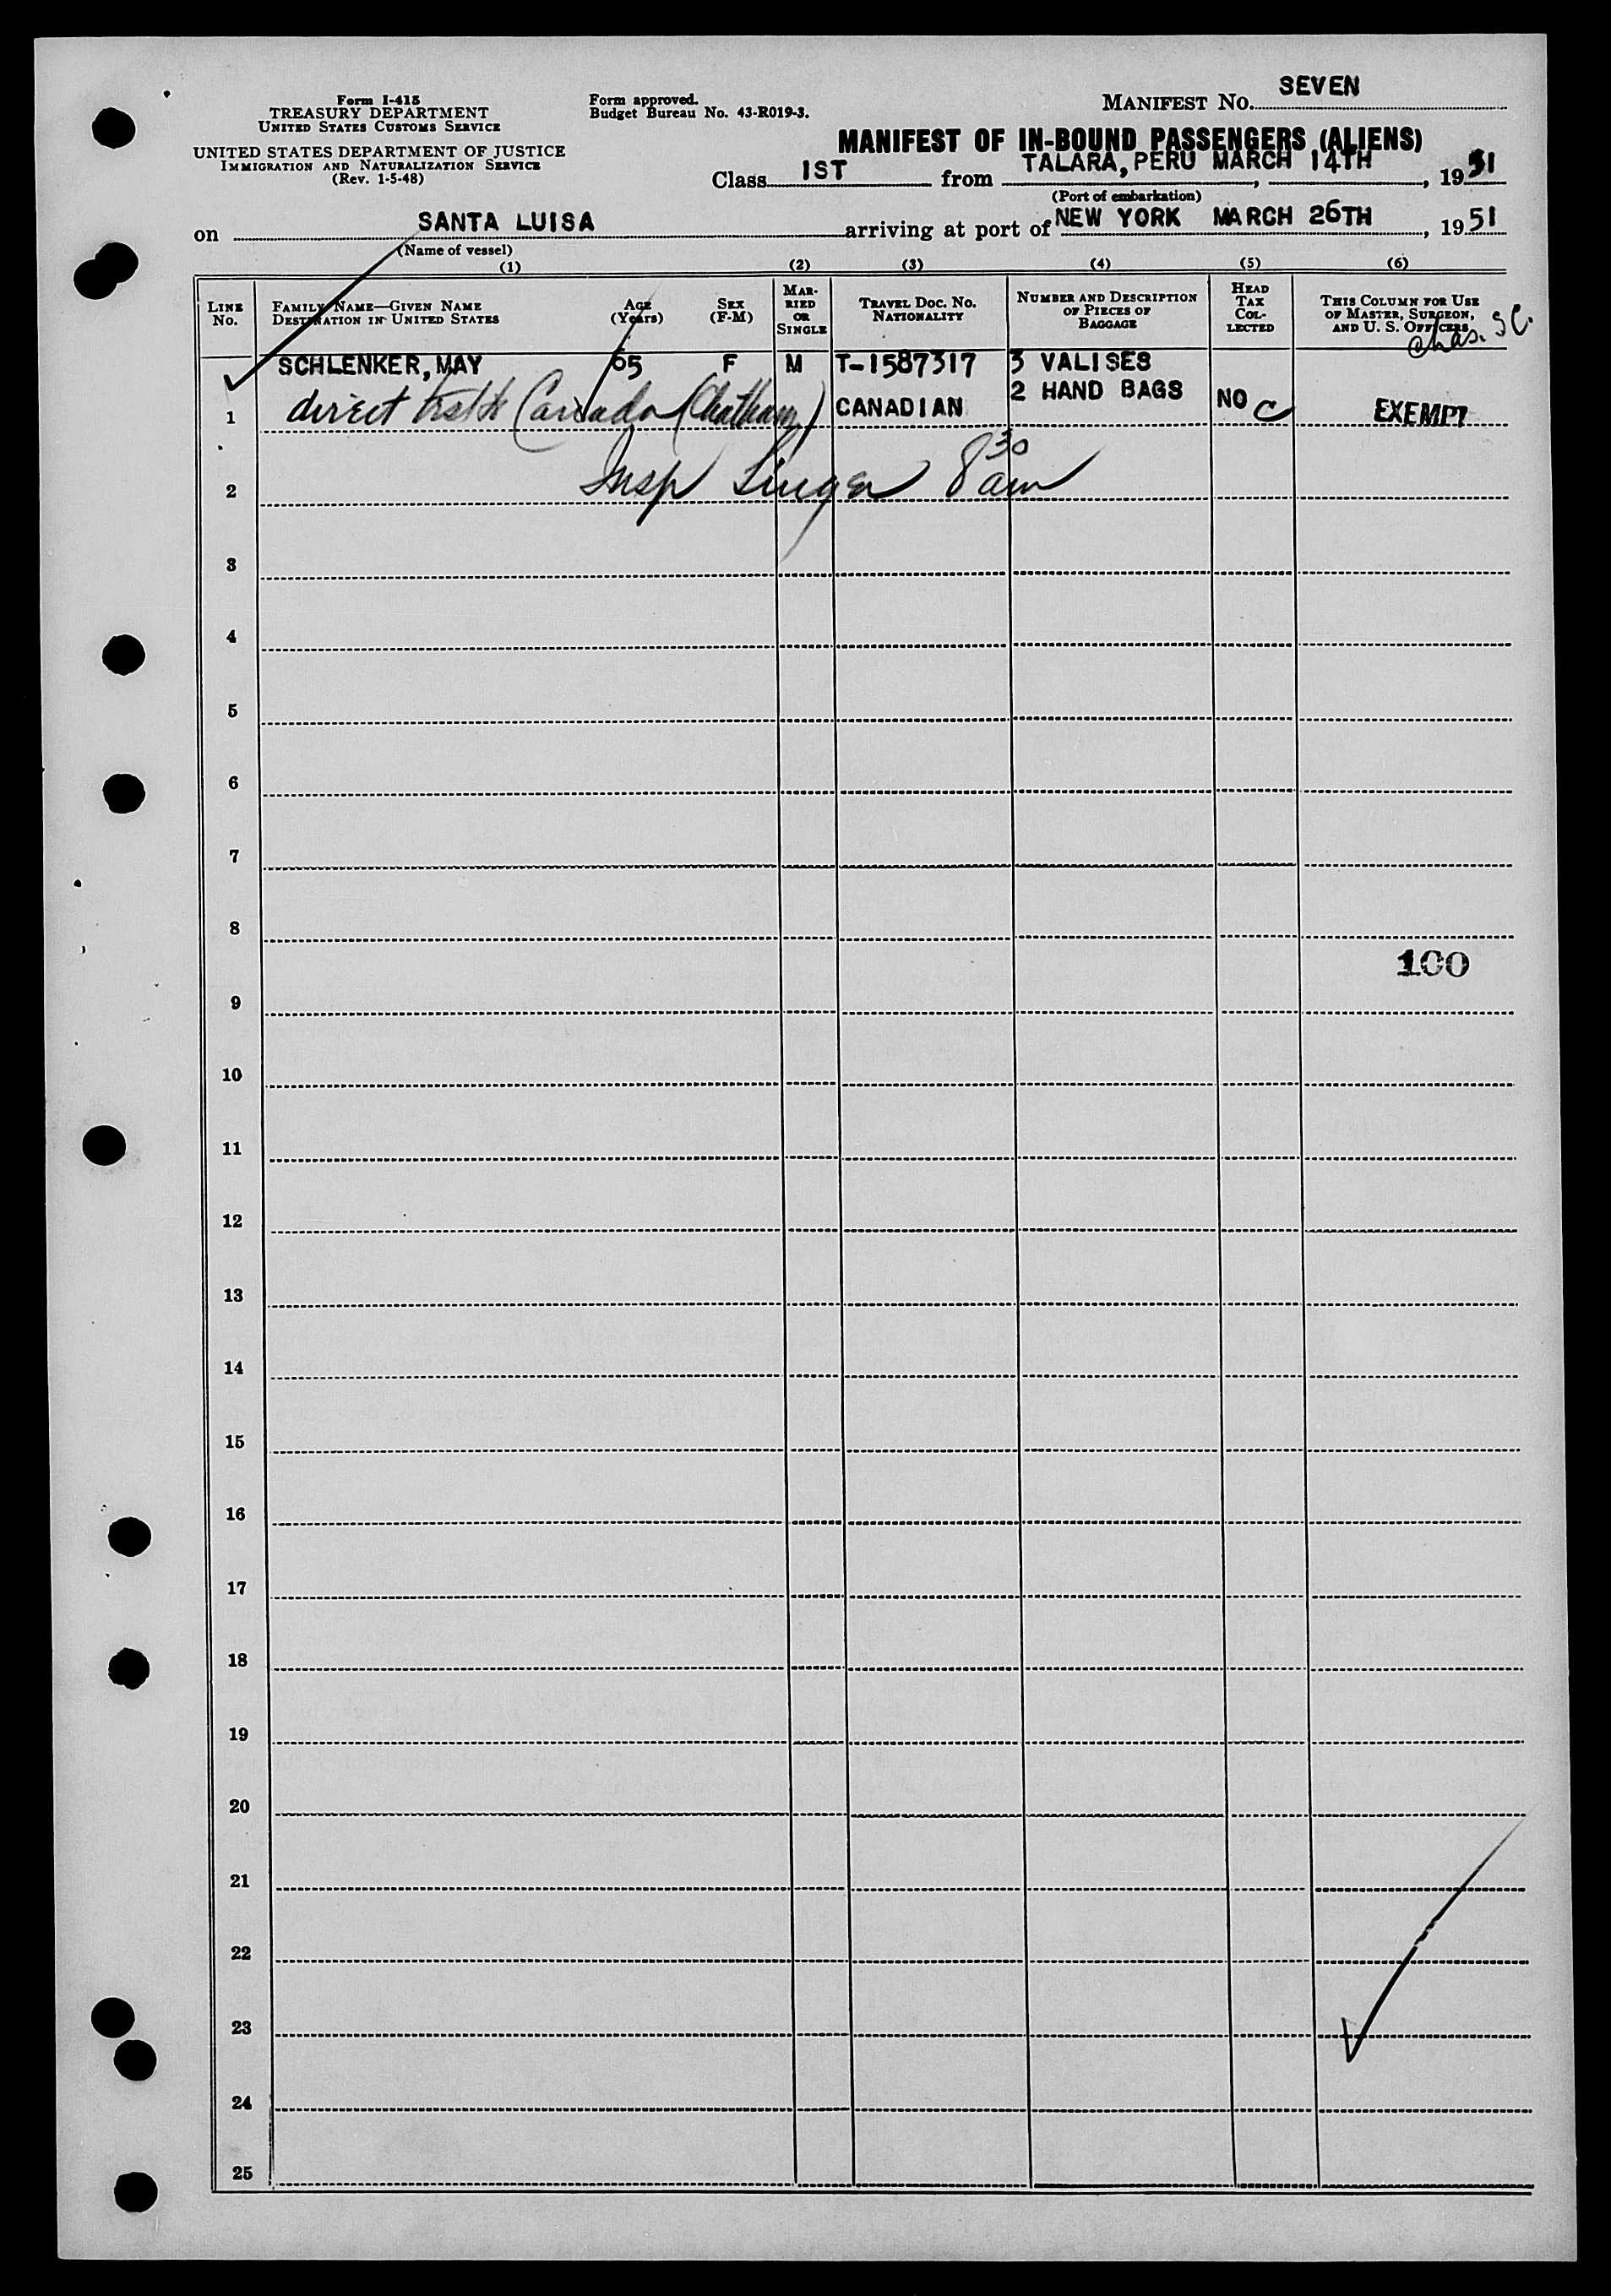 Form I-415
TREASURY DEPARTMENT
UNITED STATES CUSTOMS SERVICE
UNITED STATES DEPARTMENT OF JUSTICE
IMMIGRATION AND NATURALIZATION SERVICE
(Rev. 1-5-48)
Form approved.
Budget Bureau No. 43-R019-3.
MANIFEST No. SEVEN
MANIFEST OF IN-BOUND PASSENGERS (ALIENS)
Class 1ST from TALARA, PERU MARCH 14TH, 1951
(Port of embarkation)
on SANTA LUISA arriving at port of NEW YORK MARCH 26TH, 1951
(Name of vessel)
(1) (2) (3) (4) (5) (6)
LINE No.
FAMILY NAME—GIVEN NAME
DESTINATION IN UNITED STATES
AGE (Years)
SEX (F-M)
MARRIED OR SINGLE
TRAVEL DOC. NO.
NATIONALITY
NUMBER AND DESCRIPTION OF PIECES OF BAGGAGE
HEAD TAX COLLECTED
THIS COLUMN FOR USE OF MASTER, SURGEON, AND U. S. OFFICERS
Chas. S.C.
SCHLENKER, MAY 65 F M T-1587317 3 VALISES
2 HAND BAGS
1 direct Canada (Chatham) CANADIAN NO C EXEMPT
2 Insp Singer 8 30 am
3
4
5
6
7
8
100
9
10
11
12
13
14
15
16
17
18
19
20
21
22
23
24
25